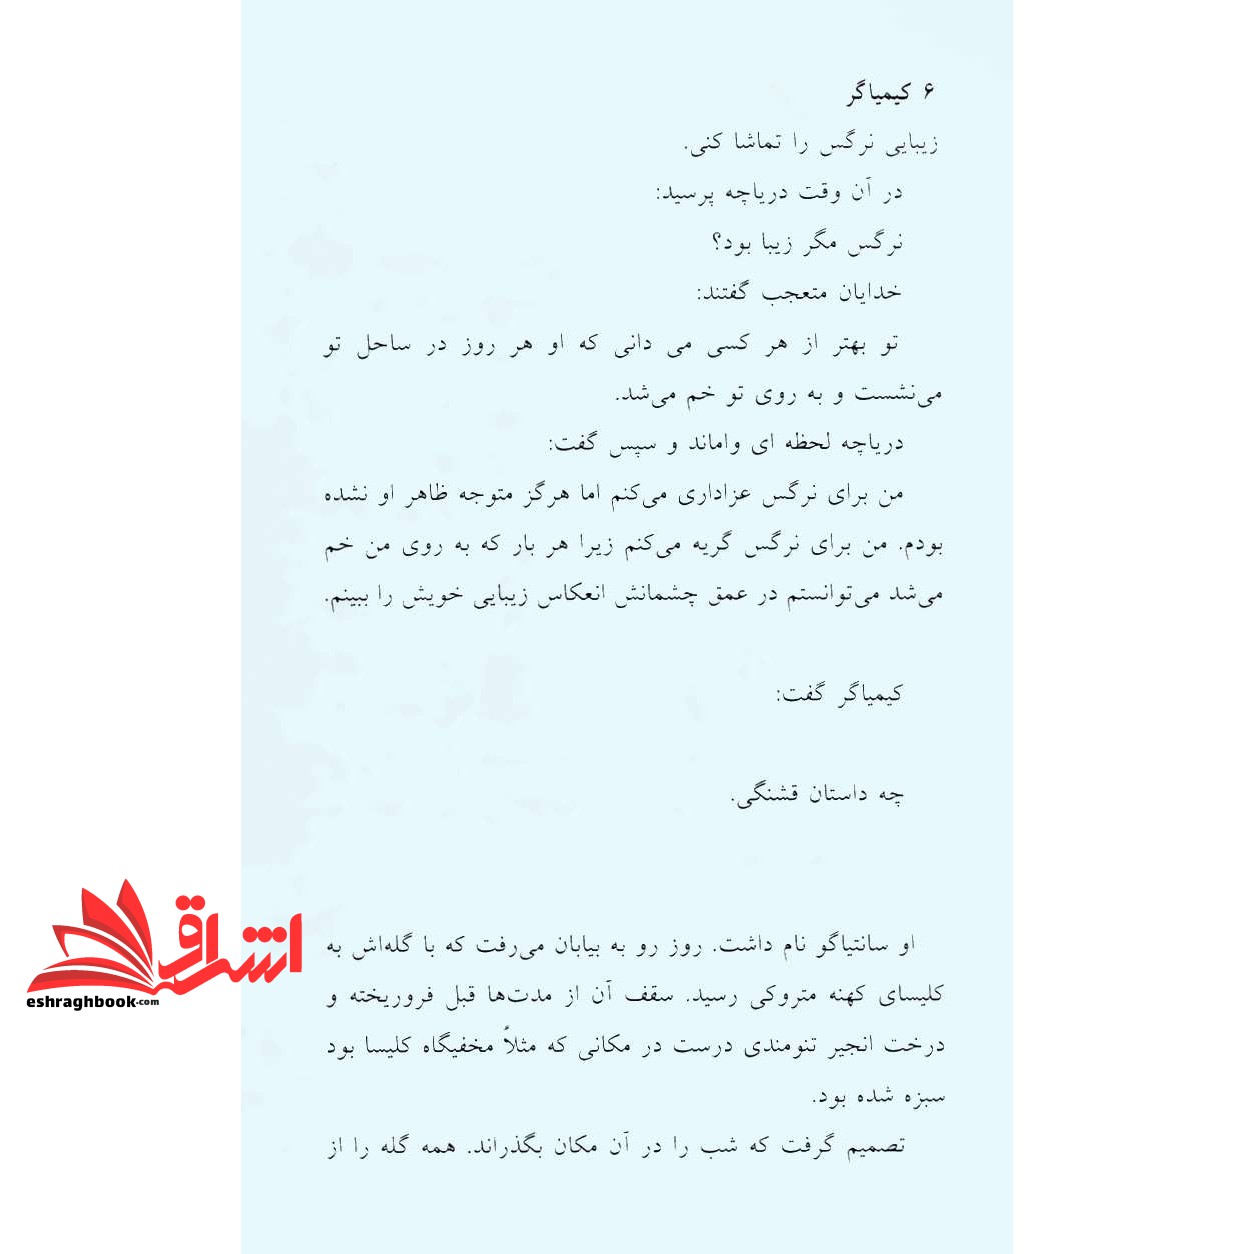 ۶ کیمیاگر
زیبایی نرگس را تماشا کنی.
در آن وقت دریاچه پرسید:
نرگس مگر زیبا بود؟
خدایان متعجب گفتند:
تو بهتر از هر کسی می دانی که او هر روز در ساحل تو
می‌نشست و به روی تو خم می‌شد.
دریاچه لحظه ای واماند و سپس گفت:
من برای نرگس عزاداری می‌کنم اما هرگز متوجه ظاهر او نشده
بودم. من برای نرگس گریه می‌کنم زیرا هر بار که به روی من خم
می‌شد می‌توانستم در عمق چشمانش انعکاس زیبایی خویش را ببینم.
کیمیاگر گفت:
چه داستان قشنگی.
او سانتیاگو نام داشت. روز رو به بیابان می‌رفت که با گله‌اش به
کلیسای کهنه متروکی رسید. سقف آن از مدت‌ها قبل فروریخته و
درخت انجیر تنومندی درست در مکانی که مثلاً مخفیگاه کلیسا بود
سبزه شده بود.
تصمیم گرفت که شب را در آن مکان بگذراند. همه گله را از
اشراق
eshraghbook.com